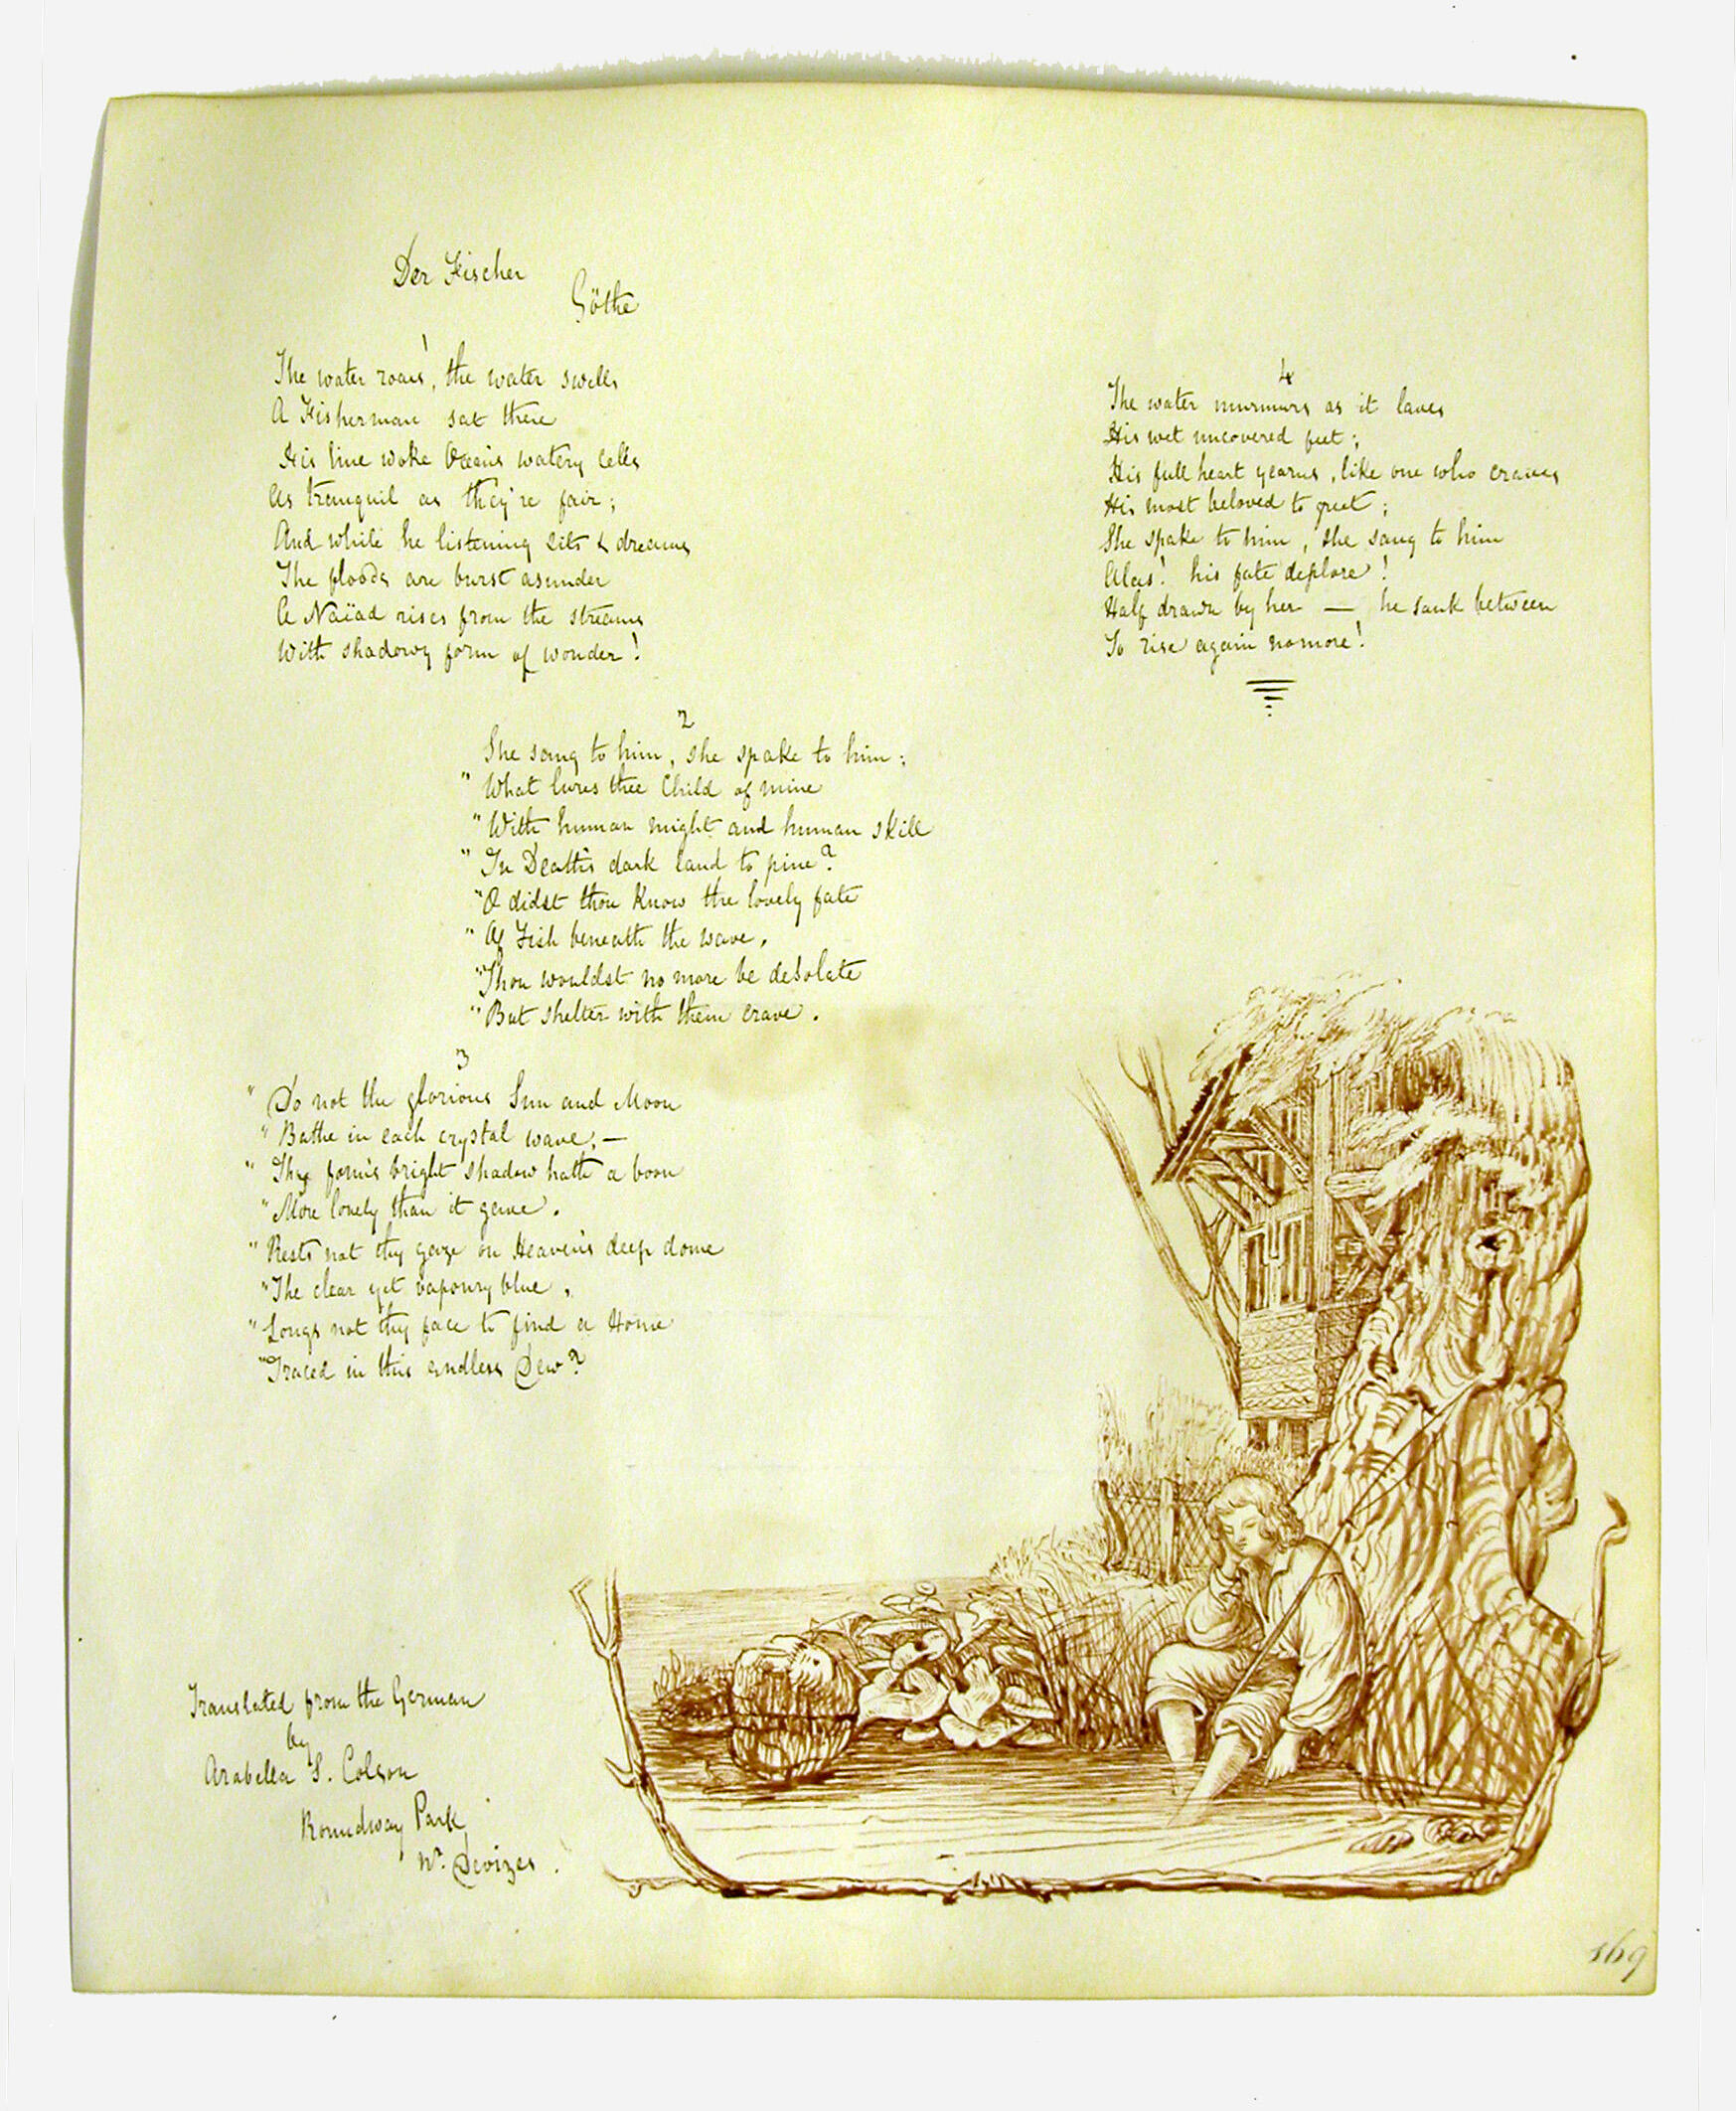 Der Fischer
Göthe
1
The water roars, the water swells
A Fisherman sat there
His line woke Ocean's watery cells
As tranquil as they're fair;
And while he listening sits & dreams
The floods are burst asunder
A Naïad rises from the streams
With shadowy form of wonder!
2
She sang to him, she spake to him;
" What lures thee Child of mine
" With human might and human skill
" In Death's dark land to pine?
" O didst thou Know the lovely fate
" Of Fish beneath the wave,
" Thou wouldst no more be desolate
" But shelter with them crave.
3
" Do not the glorious Sun and Moon
" Bathe in each crystal wave, —
" Thy form's bright shadow hath a boon
" More lovely than it gave.
" Rests not thy gaze on Heaven's deep dome
" The clear yet vapoury blue,
" Longs not thy face to find a Home
" Traced in this endless Dew?
4
The water murmurs as it laves
His wet uncovered feet;
His full heart yearns, like one who craves
His most beloved to greet;
She spake to him, she sang to him
Alas! his fate deplore!
Half drawn by her — he sank between
To rise again no more!
Translated from the German
by
Arabella S. Colson
Roundway Park
Nr. Devizes.
169